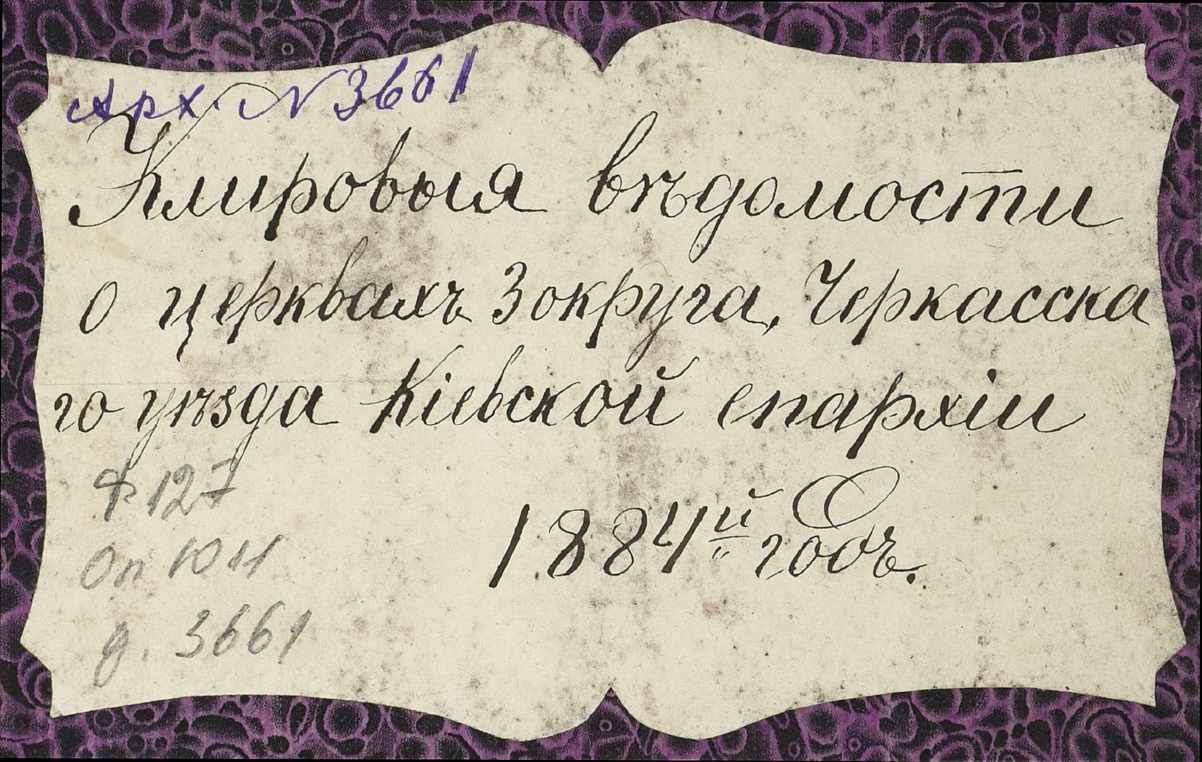 Арх. N 3661
Клировыя вѣдомости
о церквахъ 3 округа, Черкасска
го уѣзда Кіевской епархіи
1884й годъ.
Ф 127
Оп 1011
д. 3661